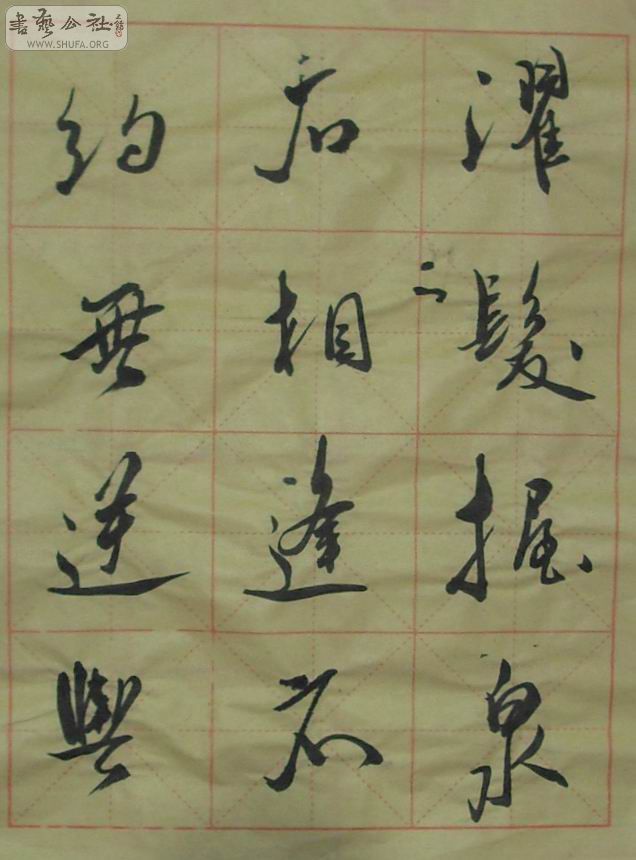 書藝公社
WWW.SHUFA.ORG
濯髮握泉
石相逢不
約無逆與